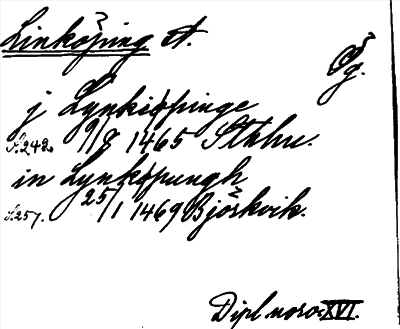 Linköping st.
Ög.
j Lynkiöpinge
S.242. 9/8 1465 Sthlm.
in Lynköpungh
S.257. 25/1 1469 Björkvik.
Dipl noro XVI.